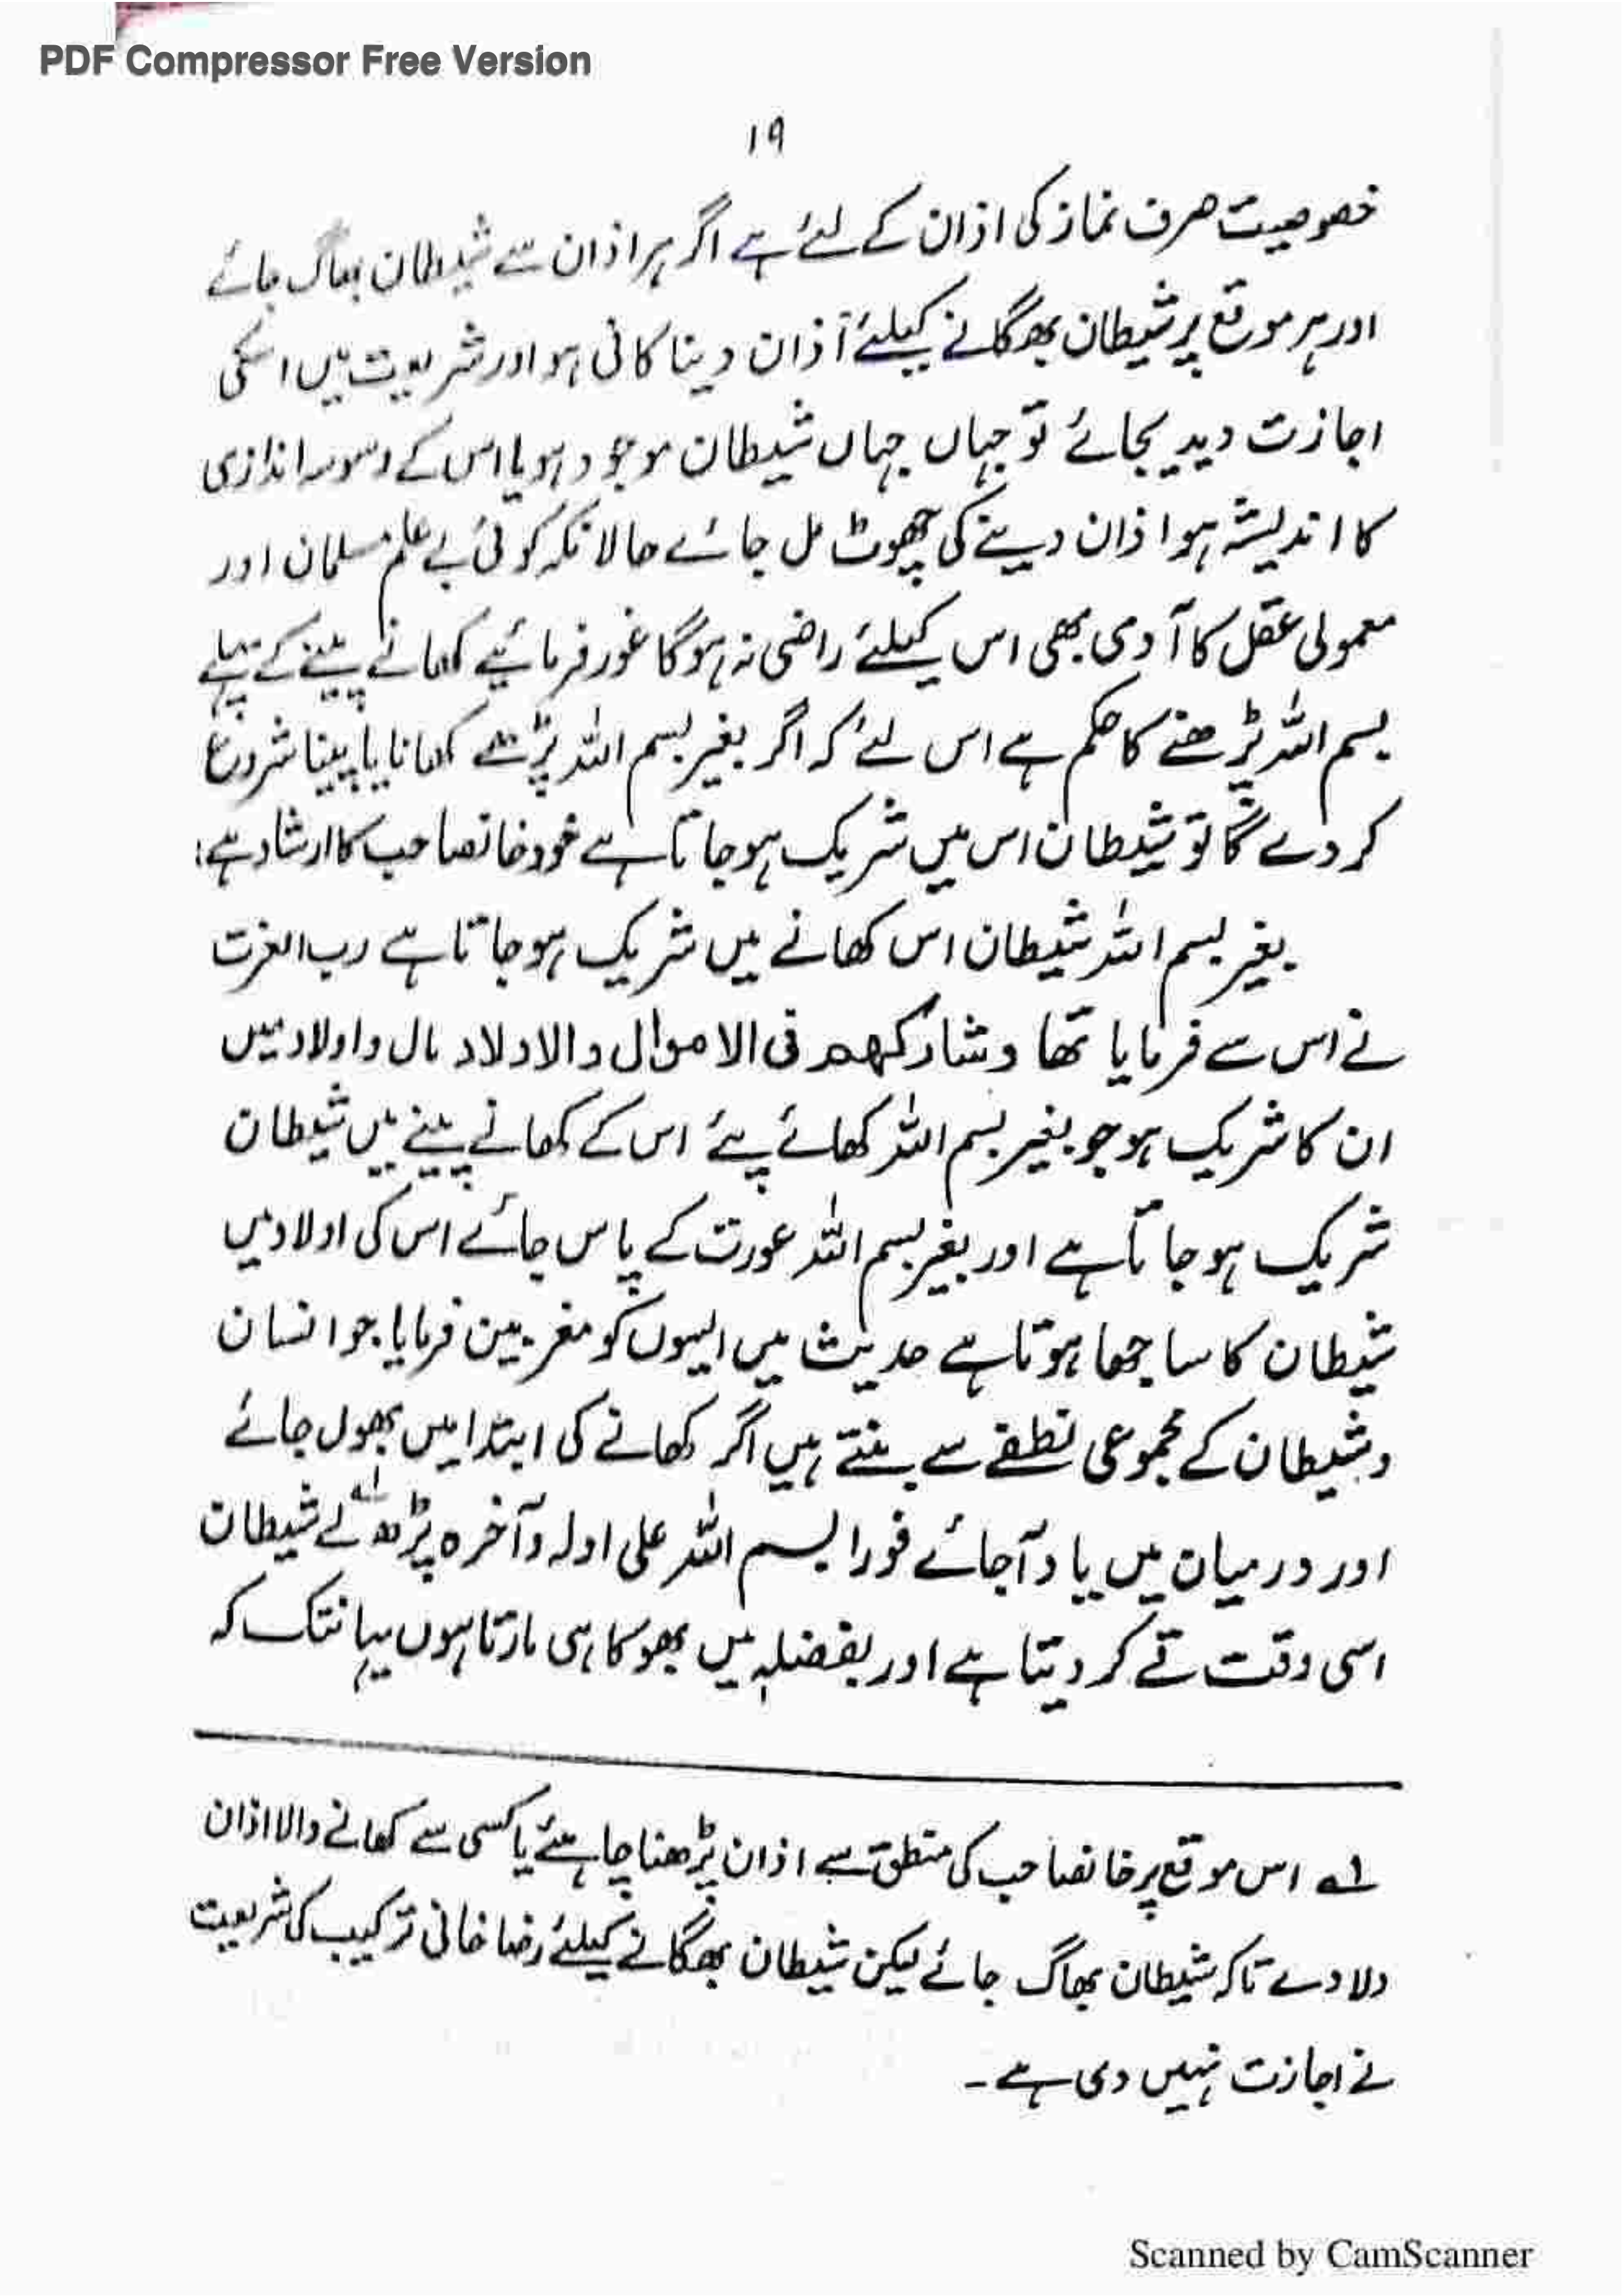 PDF Compressor Free Version
۱۹
خصوصیت صرف نماز کی اذان کے لئے ہے اگر ہر اذان سے شیطان بھاگ جائے
اور ہر موقع پر شیطان بھگانے کیلئے آذان دینا کافی ہو اور شریعت میں اسکی
اجازت دیدیجائے تو جہاں جہاں شیطان موجود ہو یا اس کے وسوسہ اندازی
کا اندیشہ ہو اذان دینے کی چھوٹ مل جائے حالانکہ کوئی بے علم مسلمان اور
معمولی عقل کا آدمی بھی اس کیلئے راضی نہ ہوگا غور فرمائیے کھانے پینے کے پہلے
بسم اللہ پڑھنے کا حکم ہے اس لئے کہ اگر بغیر بسم اللہ پڑھے کھانا یا پینا شروع
کر دے گا تو شیطان اس میں شریک ہو جاتا ہے خود خانصاحب کا ارشاد ہے:
بغیر بسم اللہ شیطان اس کھانے میں شریک ہو جاتا ہے رب العزت
نے اس سے فرمایا تھا وشارکھم فی الاموال والاولاد مال و اولاد میں
ان کا شریک ہو جو بغیر بسم اللہ کھائے پئے اس کے کھانے پینے میں شیطان
شریک ہو جاتا ہے اور بغیر بسم اللہ عورت کے پاس جائے اس کی اولاد میں
شیطان کا ساجھا ہوتا ہے حدیث میں ایسوں کو مغربین فرمایا جو انسان
و شیطان کے مجموعی نطفے سے بنتے ہیں اگر کھانے کی ابتدا میں بھول جائے
اور درمیان میں یاد آجائے فورا بسم اللہ علی اولہ وآخرہ پڑھ لے شیطان
اسی وقت قے کر دیتا ہے اور بفضلہ میں بھوکا ہی مارتا ہوں یہانتک کہ
لہ اس موقع پر خانصاحب کی منطق سے اذان پڑھنا چاہئے یا کسی سے کھانے والا اذان
دلا دے تاکہ شیطان بھاگ جائے لیکن شیطان بھگانے کیلئے رضا خانی ترکیب کی شریعت
نے اجازت نہیں دی ہے۔
Scanned by CamScanner